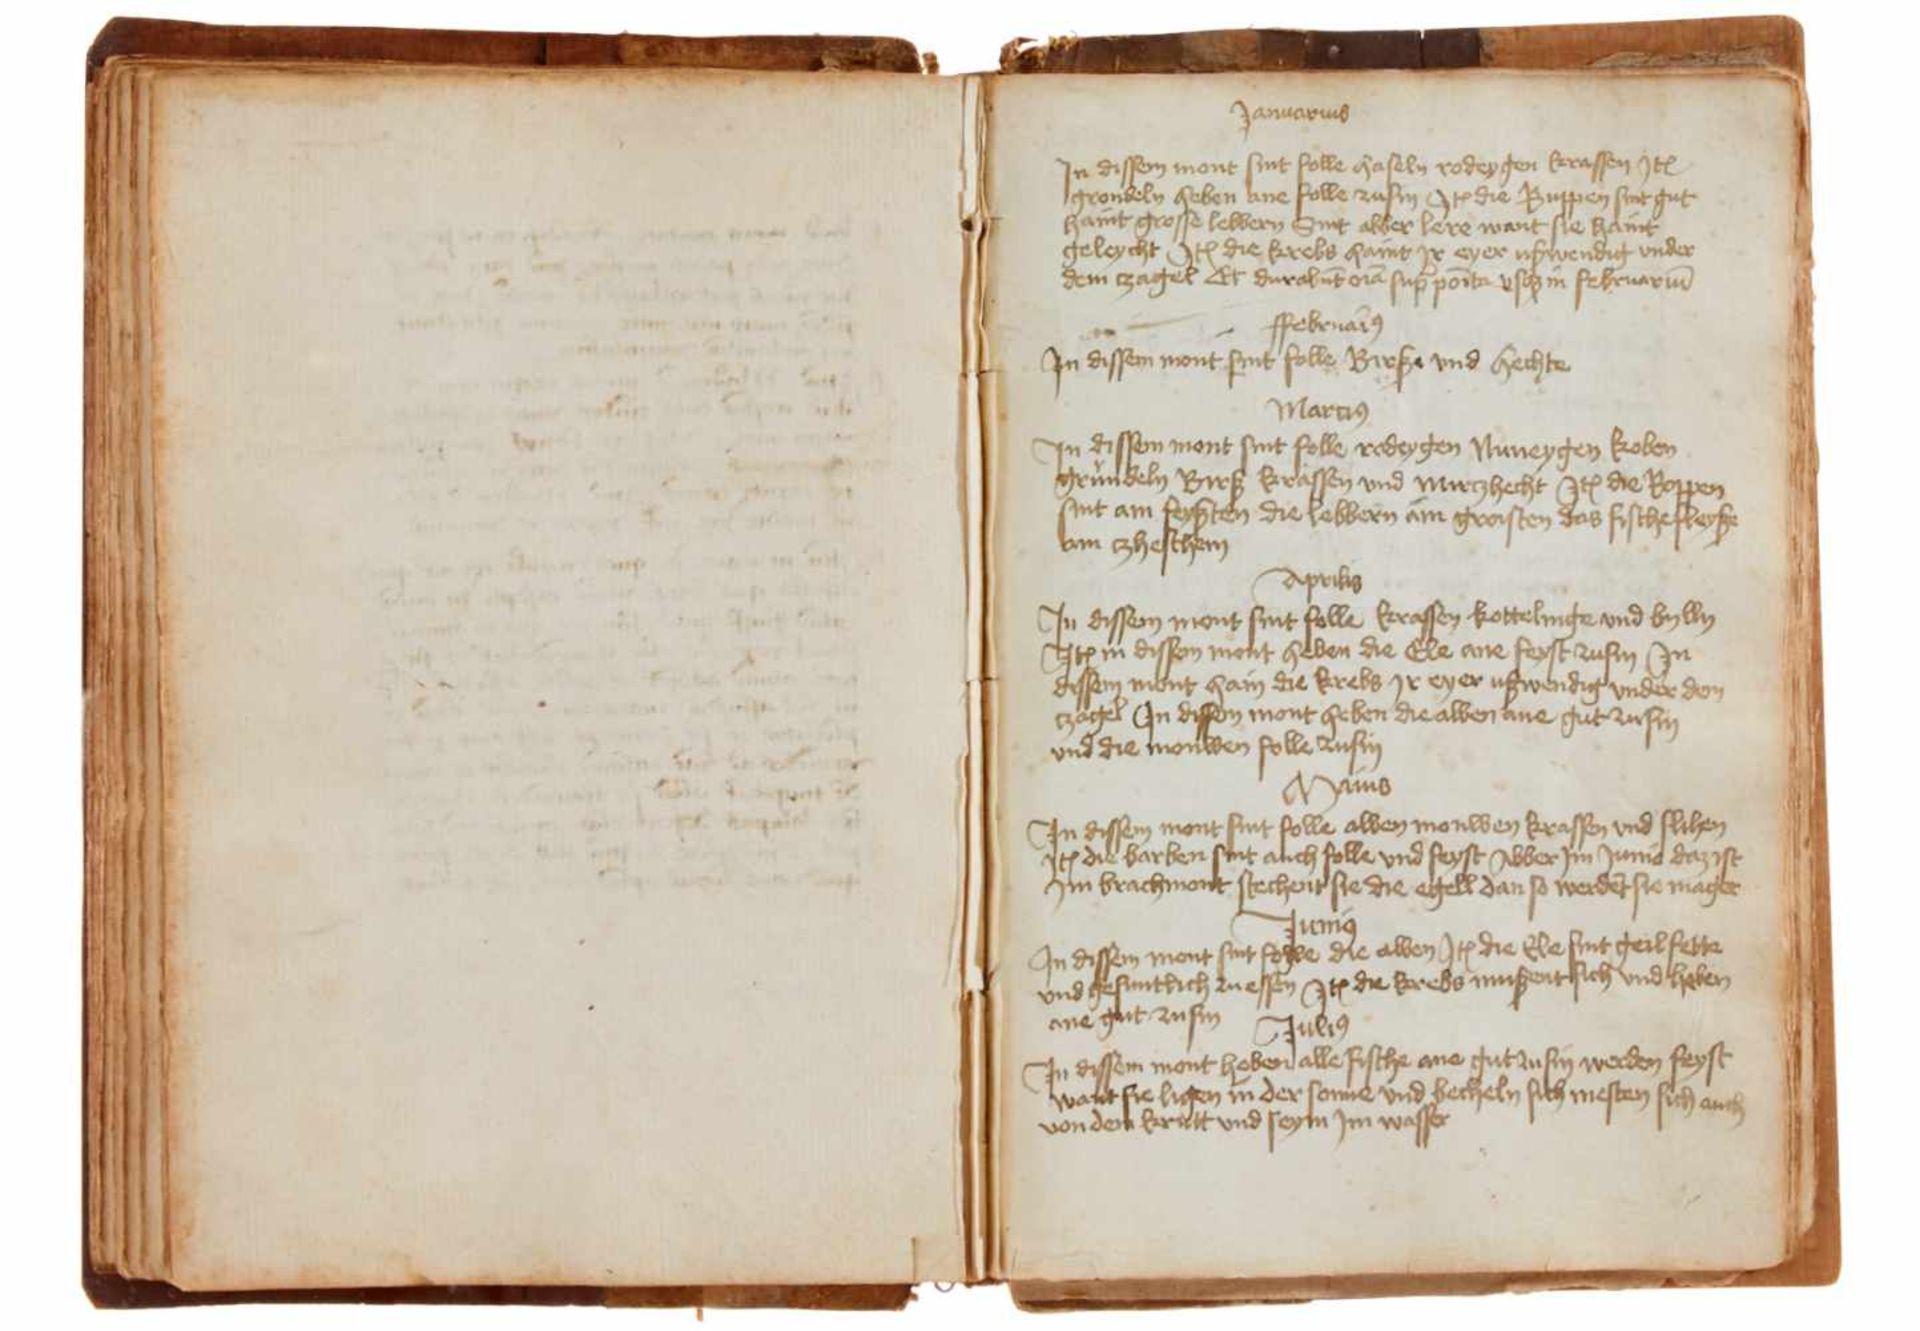 Januarius
In dissem mont sint folle haseln rodeygen kressen Jt̃
grondeln heben ane folle zusin Jt̃ die Ruppen sint gut
haint grosse lebbern Sint abber lere want sie haint
geleycht Jt̃ die krebs haint Jr eyer ußwendig vnder
dem czagel Et durabũt oĩa sup̃ poĩta vsqz in februariũ
ffebruaiꝰ
In dissem mont sint folle Birße vnd hechte
Marciꝰ
In dissem mont sint folle rodeygen Nuneygen koben
grundeln Birß kressen vnd mirczhecht Jt̃ die Roppen
sint am feyßten die lebbern am groisten das fischefleysze
am
Aprilis
In dissem mont sint folle kressen kottelinge vnd
Jt̃ in dissem mont heben die Ele ane feyst zusin In
dissem mont hain die krebs Jr eyer ußwendig vnder dem
czagel In dissem mont heben die alben ane gut zusin
vnd die monwen folle zusin
Maius
In dissem mont sint folle alben monwen kressen vnd slihen
Jt̃ die barben sint auch folle vnd feyst Abber Jm Junio daz ist
Jm brachmont stechent sie die egell dan so werdẽt sie mager
Juniꝰ
In dissem mont sint folle die alben Jt̃ die Ele sint geil fette
vnd gesuntlich zu essen Jt̃ die krebs mußent sich vnd heben
ane gut zusin
Juliꝰ
In dissem mont heben alle fische ane gut zusin werden feyst
want sie ligen in der sonne vnd becheln sich mesten sich auch
von dem krutt vnd seym Jm wasser